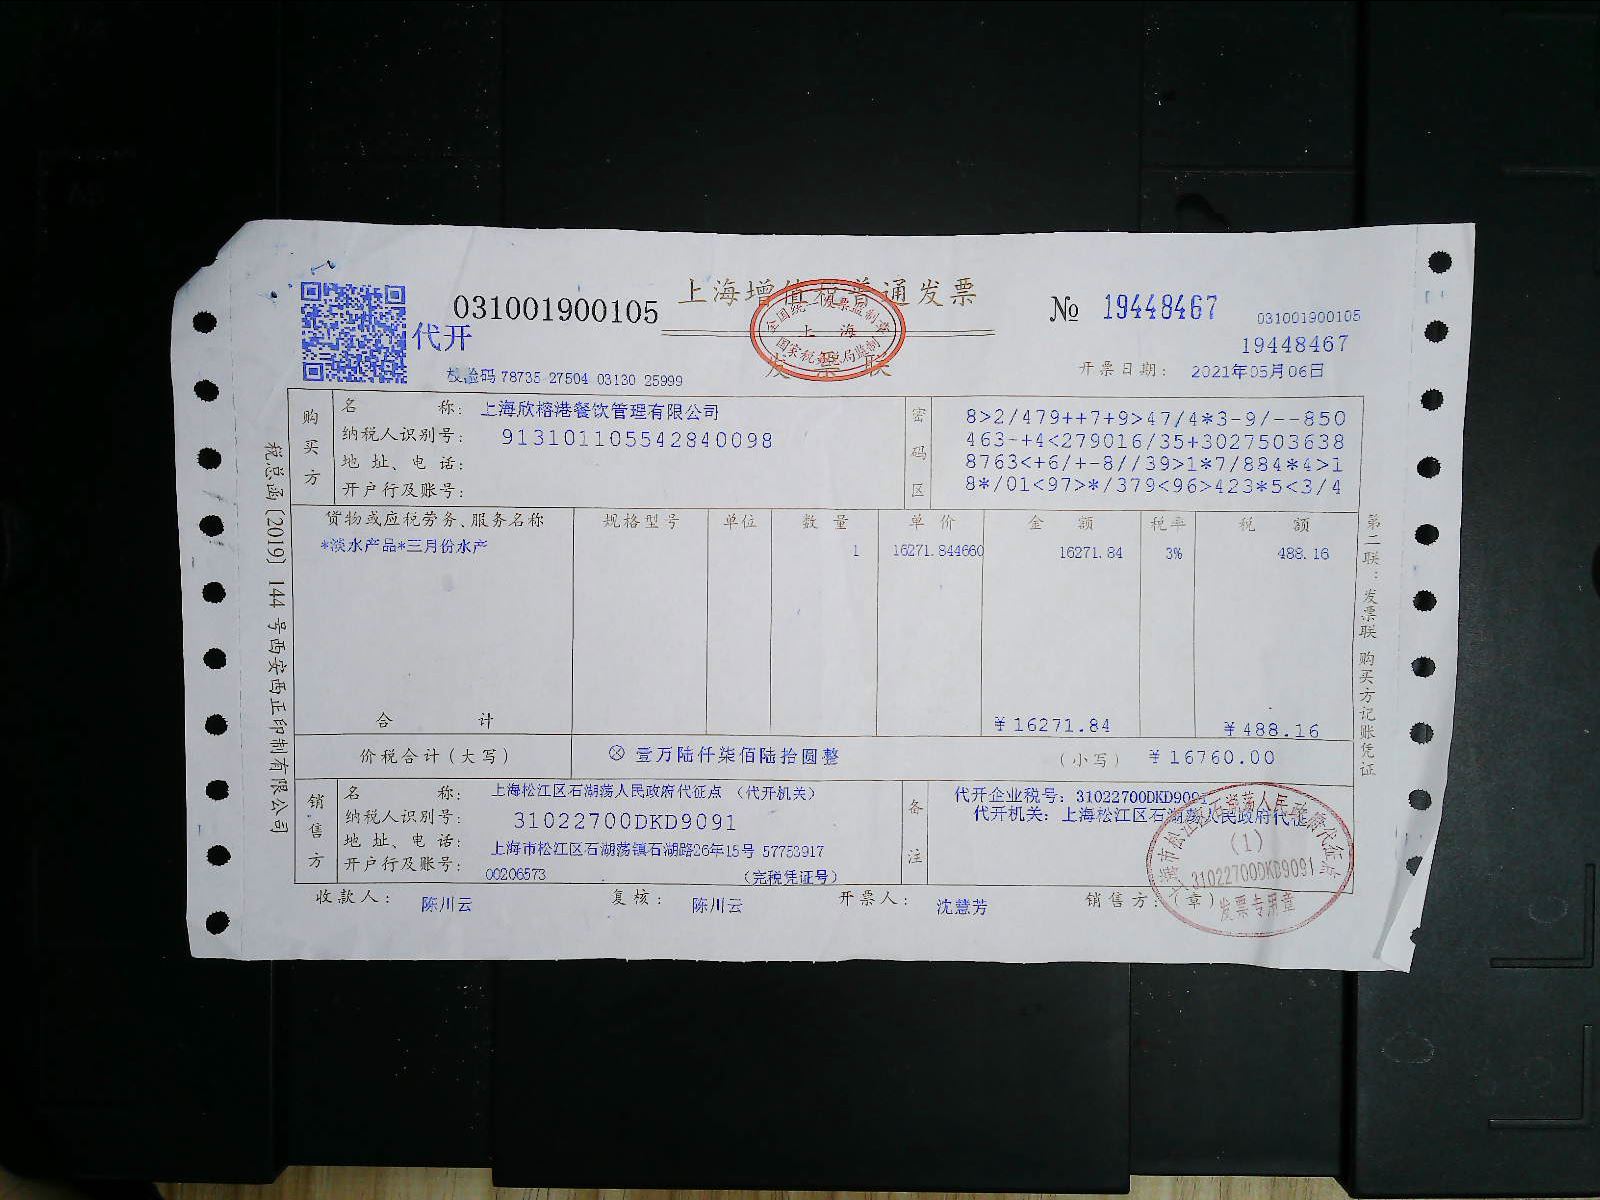 上海增值税普通发票
发票联
全国统一发票监制章
上海
国家税务总局监制
031001900105
代开
校验码 78735 27504 03130 25999
№ 19448467
031001900105
19448467
开票日期： 2021年05月06日
购买方
名 称：上海欣榕港餐饮管理有限公司
纳税人识别号：913101105542840098
地 址、电 话：
开户行及账号：
密码区
8>2/479++7+9>47/4*3-9/--850
463-+4<279016/35+3027503638
8763<+6/+-8//39>1*7/884*4>1
8*/01<97>*/379<96>423*5<3/4
货物或应税劳务、服务名称 规格型号 单位 数 量 单 价 金 额 税率 税 额
*淡水产品*三月份水产 1 16271.844660 16271.84 3% 488.16
合 计 ￥16271.84 ￥488.16
价税合计（大写） ⊗ 壹万陆仟柒佰陆拾圆整 （小写） ￥16760.00
销售方
名 称：上海松江区石湖荡人民政府代征点 （代开机关）
纳税人识别号：31022700DKD9091
地 址、电 话：上海市松江区石湖荡镇石湖路26年15号 57753917
开户行及账号：00206573 （完税凭证号）
备注
代开企业税号：31022700DKD9091
代开机关：上海松江区石湖荡人民政府代征
收款人：陈川云 复核：陈川云 开票人：沈慧芳 销售方：（章）
上海市松江区石湖荡人民政府代征点
(1)
31022700DKD9091
发票专用章
税总函〔2019〕144号西安西正印制有限公司
第二联：发票联 购买方记账凭证